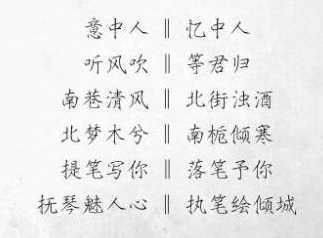 意中人 ‖ 忆中人
听风吹 ‖ 等君归
南巷清风 ‖ 北街浊酒
北梦木兮 ‖ 南栀倾寒
提笔写你 ‖ 落笔予你
抚琴魅人心 ‖ 执笔绘倾城